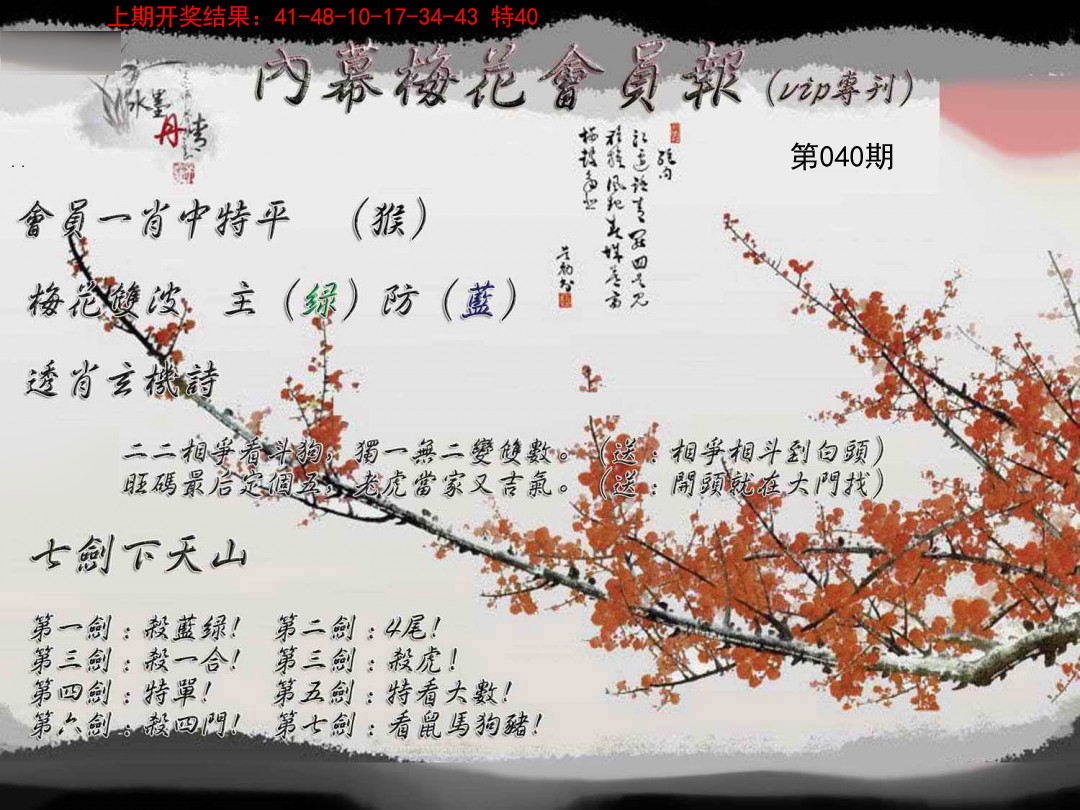 上期开奖结果：41-48-10-17-34-43 特40
內幕梅花會員報（vip專刊）
水墨
丹青
第040期
會員一肖中特平 （猴）
梅花雙波 主（绿）防（藍）
透肖玄機詩
二二相爭看斗狗，獨一無二變雙數。（送：相爭相斗到白頭）
旺碼最后定個五，老虎當家又吉氣。（送：開頭就在大門找）
七劍下天山
第一劍：殺藍绿！ 第二劍：4尾！
第三劍：殺一合！ 第三劍：殺虎！
第四劍：特單！ 第五劍：特看大數！
第六劍：殺四門！ 第七劍：看鼠馬狗豬！